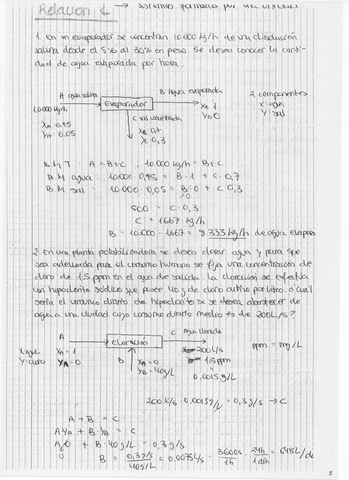 Relación 1 → sistemas formados por una unidad
1. En un evaporador se concentran 10.000 kg/h de una disolución
salina desde el 5% al 30% en peso. Se desea conocer la canti-
dad de agua evaporada por hora.
A agua salina
B agua evaporada
2 componentes
10.000 kg/h
Evaporador
XB 1
X: agua
XA = 0,95
YB 0
Y: sal
YA = 0.05
C sal concentrada
Xc 0,7
Yc 0,3
B.M.T: A = B+C ; 10.000 kg/h = B+C
B.M agua 10.000 · 0,95 = B · 1 + C · 0,7
B.M sal 10.000 · 0,05 = B · 0 + C · 0,3
500 = C · 0,3
C = 1667 kg/h
B = 10.000 - 1667 = 8333 kg/h de agua evapora
2. En una planta potabilizadora se desea clorar agua y para que
sea adecuada para el consumo humano se fija una concentración de
cloro de 1,5 ppm en el agua de salida. La cloración se efectúa
con hipoclorito sódico que posee 40 g de cloro activo por litro. ¿Cuál
sería el consumo diario de hipoclorito si se desea abastecer de
agua a una ciudad cuyo consumo diario medio es de 200 L/s?
A
C Agua clorada
Cloración
200 L/s
ppm = mg/L
X: agua XA = 1
B
XB = 0
1.5 ppm
Y: cloro YA = 0
YB = 40 g/L
0.0015 g/L
200 L/s · 0.0015 g/L = 0,3 g/s → C
A + B = C
A YA + B · YB = C
A · 0 + B · 40 g/L = 0,3 g/s
0
B = 0,3 g/s / 40 g/L = 0,0075 L/s · 3600s / 1h · 24h / 1 día = 648 L/dí
5